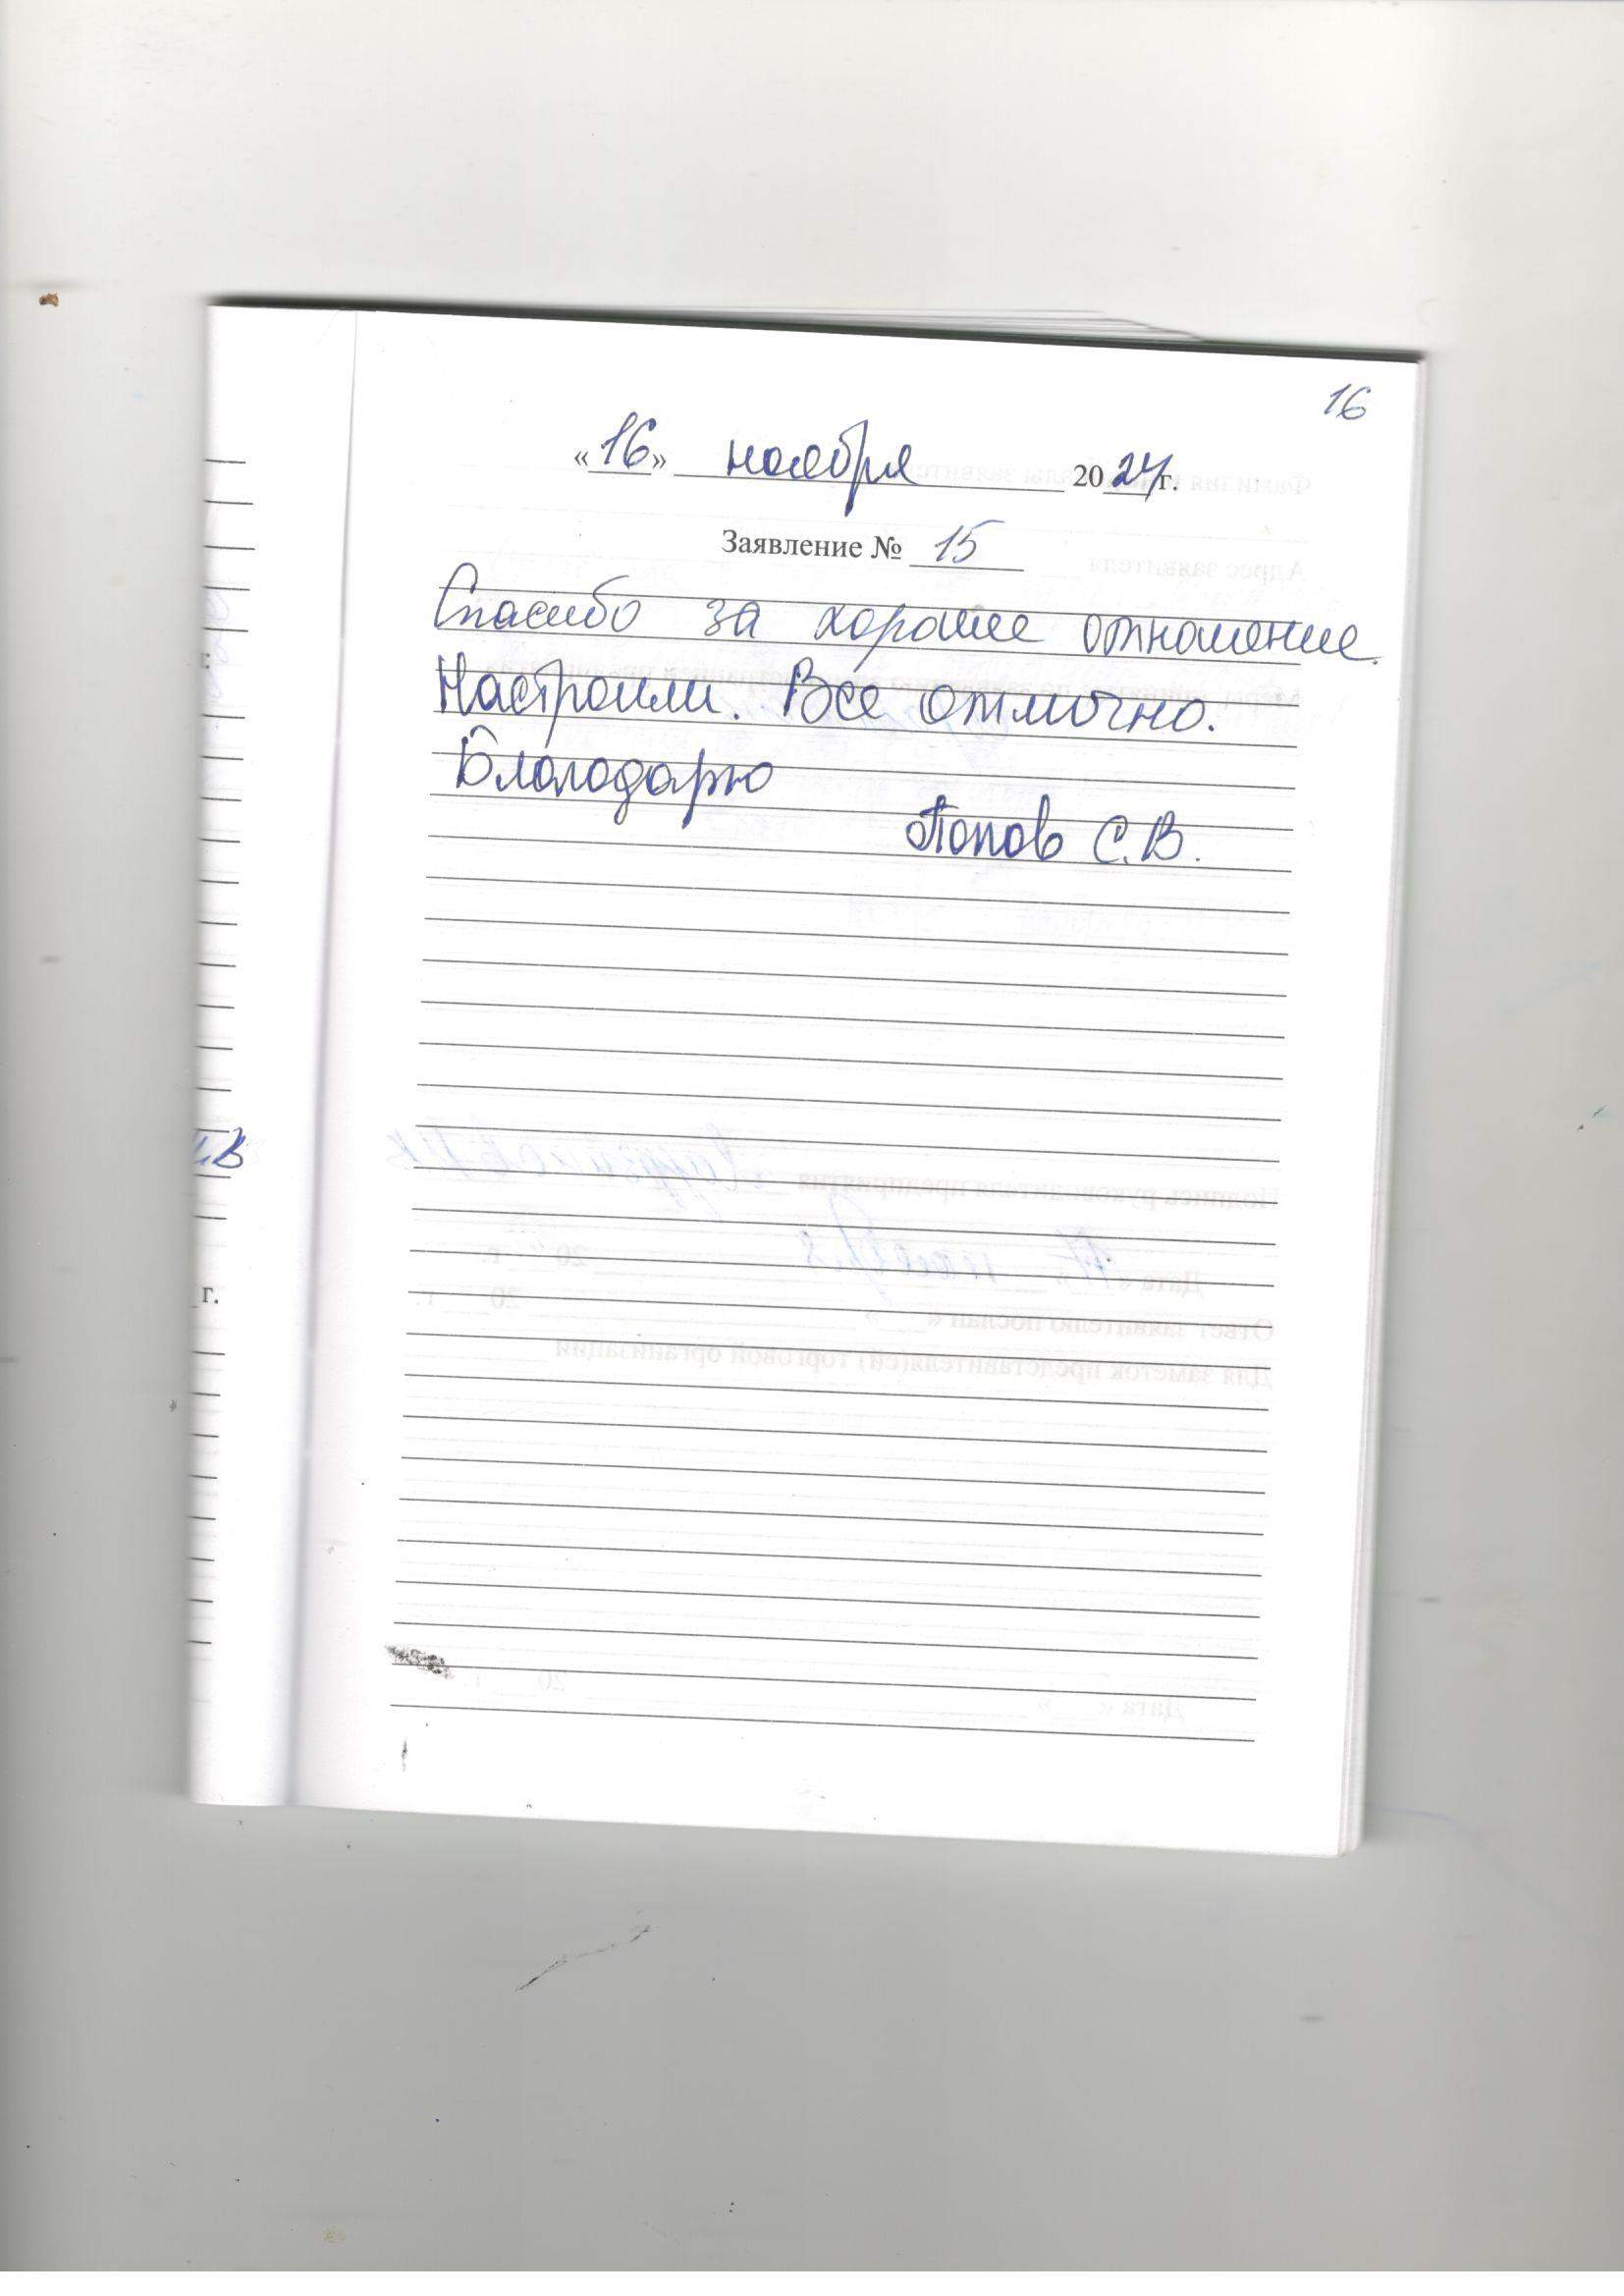 16
«16» ноября 2024 г.
Заявление № 15
Спасибо за хорошее отношение.
Настроили. Все отлично.
Благодарю
Попов С.В.
г.